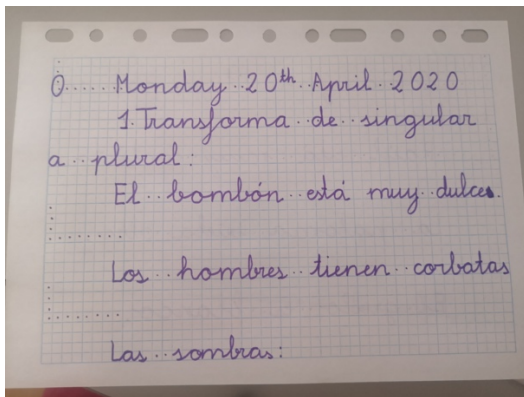 O Monday 20th April 2020
1.Transforma de singular
a plural:
El bombón está muy dulces.
Los hombres tienen corbatas
Las sombras: